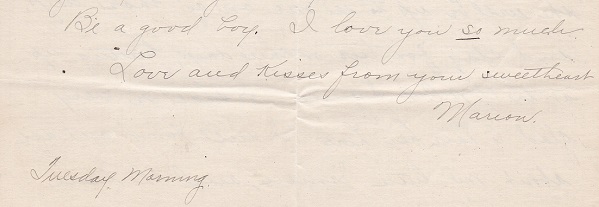 Be a good boy. I love you so much
Love and Kisses from your sweetheart
Marion.
Tuesday. Morning.